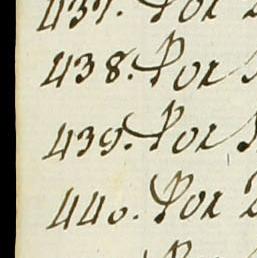 437. Por
438. Por
439. Por
440. Por